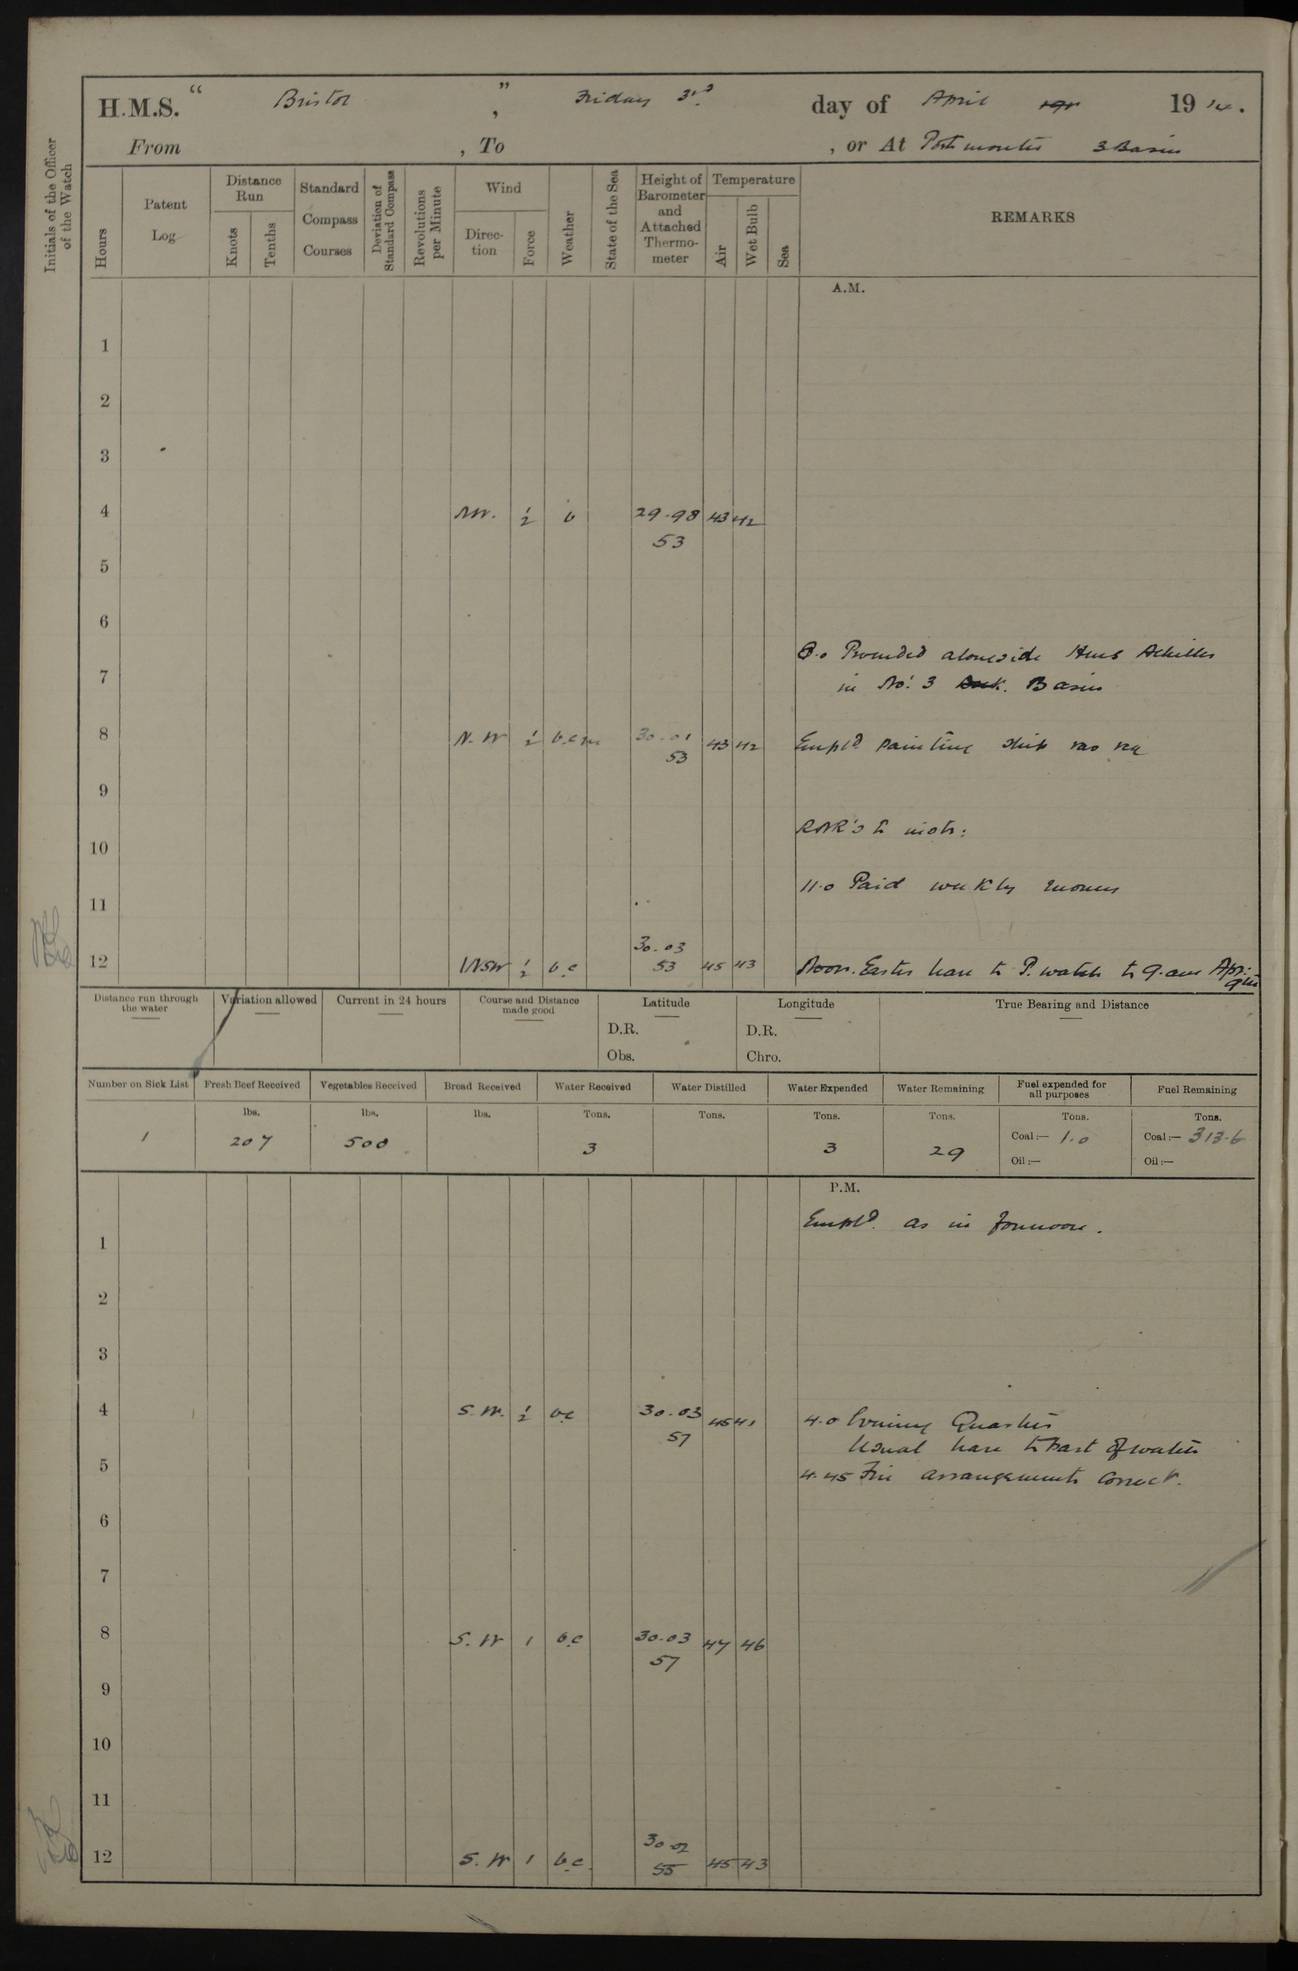 H.M.S. " Bristol ", Friday 3rd day of April 1914.
From , To , or At Portsmouth 3 Basin
Initials of the Officer of the Watch
Hours
Patent Log
Distance Run
Knots
Tenths
Standard Compass Courses
Deviation of Standard Compass
Revolutions per Minute
Wind
Direction
Force
Weather
State of the Sea
Height of Barometer and Attached Thermometer
Temperature
Air
Wet Bulb
Sea
REMARKS
A.M.
1
2
3
4 NW. ½ b 29.98 43 42
53
5
6
Proceeded alongside HMS Achilles
7 in No. 3 Dock. Basin
8 N.W ½ b.c.m 30.01 43 42 Empld painting ship
53
9
RNR's to
10
11.0 Paid weekly money
11
30.03
12 WSW ½ b.c 53 45 43 Noon. Easter leave to P. watch to 9. am Apr:
Distance run through the water
Variation allowed
Current in 24 hours
Course and Distance made good
Latitude
D.R.
Obs.
Longitude
D.R.
Chro.
True Bearing and Distance
Number on Sick List
1
Fresh Beef Received
lbs.
207
Vegetables Received
lbs.
500
Bread Received
lbs.
Water Received
Tons.
3
Water Distilled
Tons.
Water Expended
Tons.
3
Water Remaining
Tons.
29
Fuel expended for all purposes
Tons.
Coal:— 1.0
Oil:—
Fuel Remaining
Tons.
Coal:— 313.6
Oil:—
P.M.
Empld. as in forenoon.
1
2
3
4 S.W. ½ b.c 30.03 45 41 4.0 Evening Quarters
57 Usual leave to Part of watch
5 4.45 Fire arrangements correct.
6
7
8 S.W 1 b.c 30.03 47 46
57
9
10
11
30.02
12 S.W 1 b.c. 55 45 43